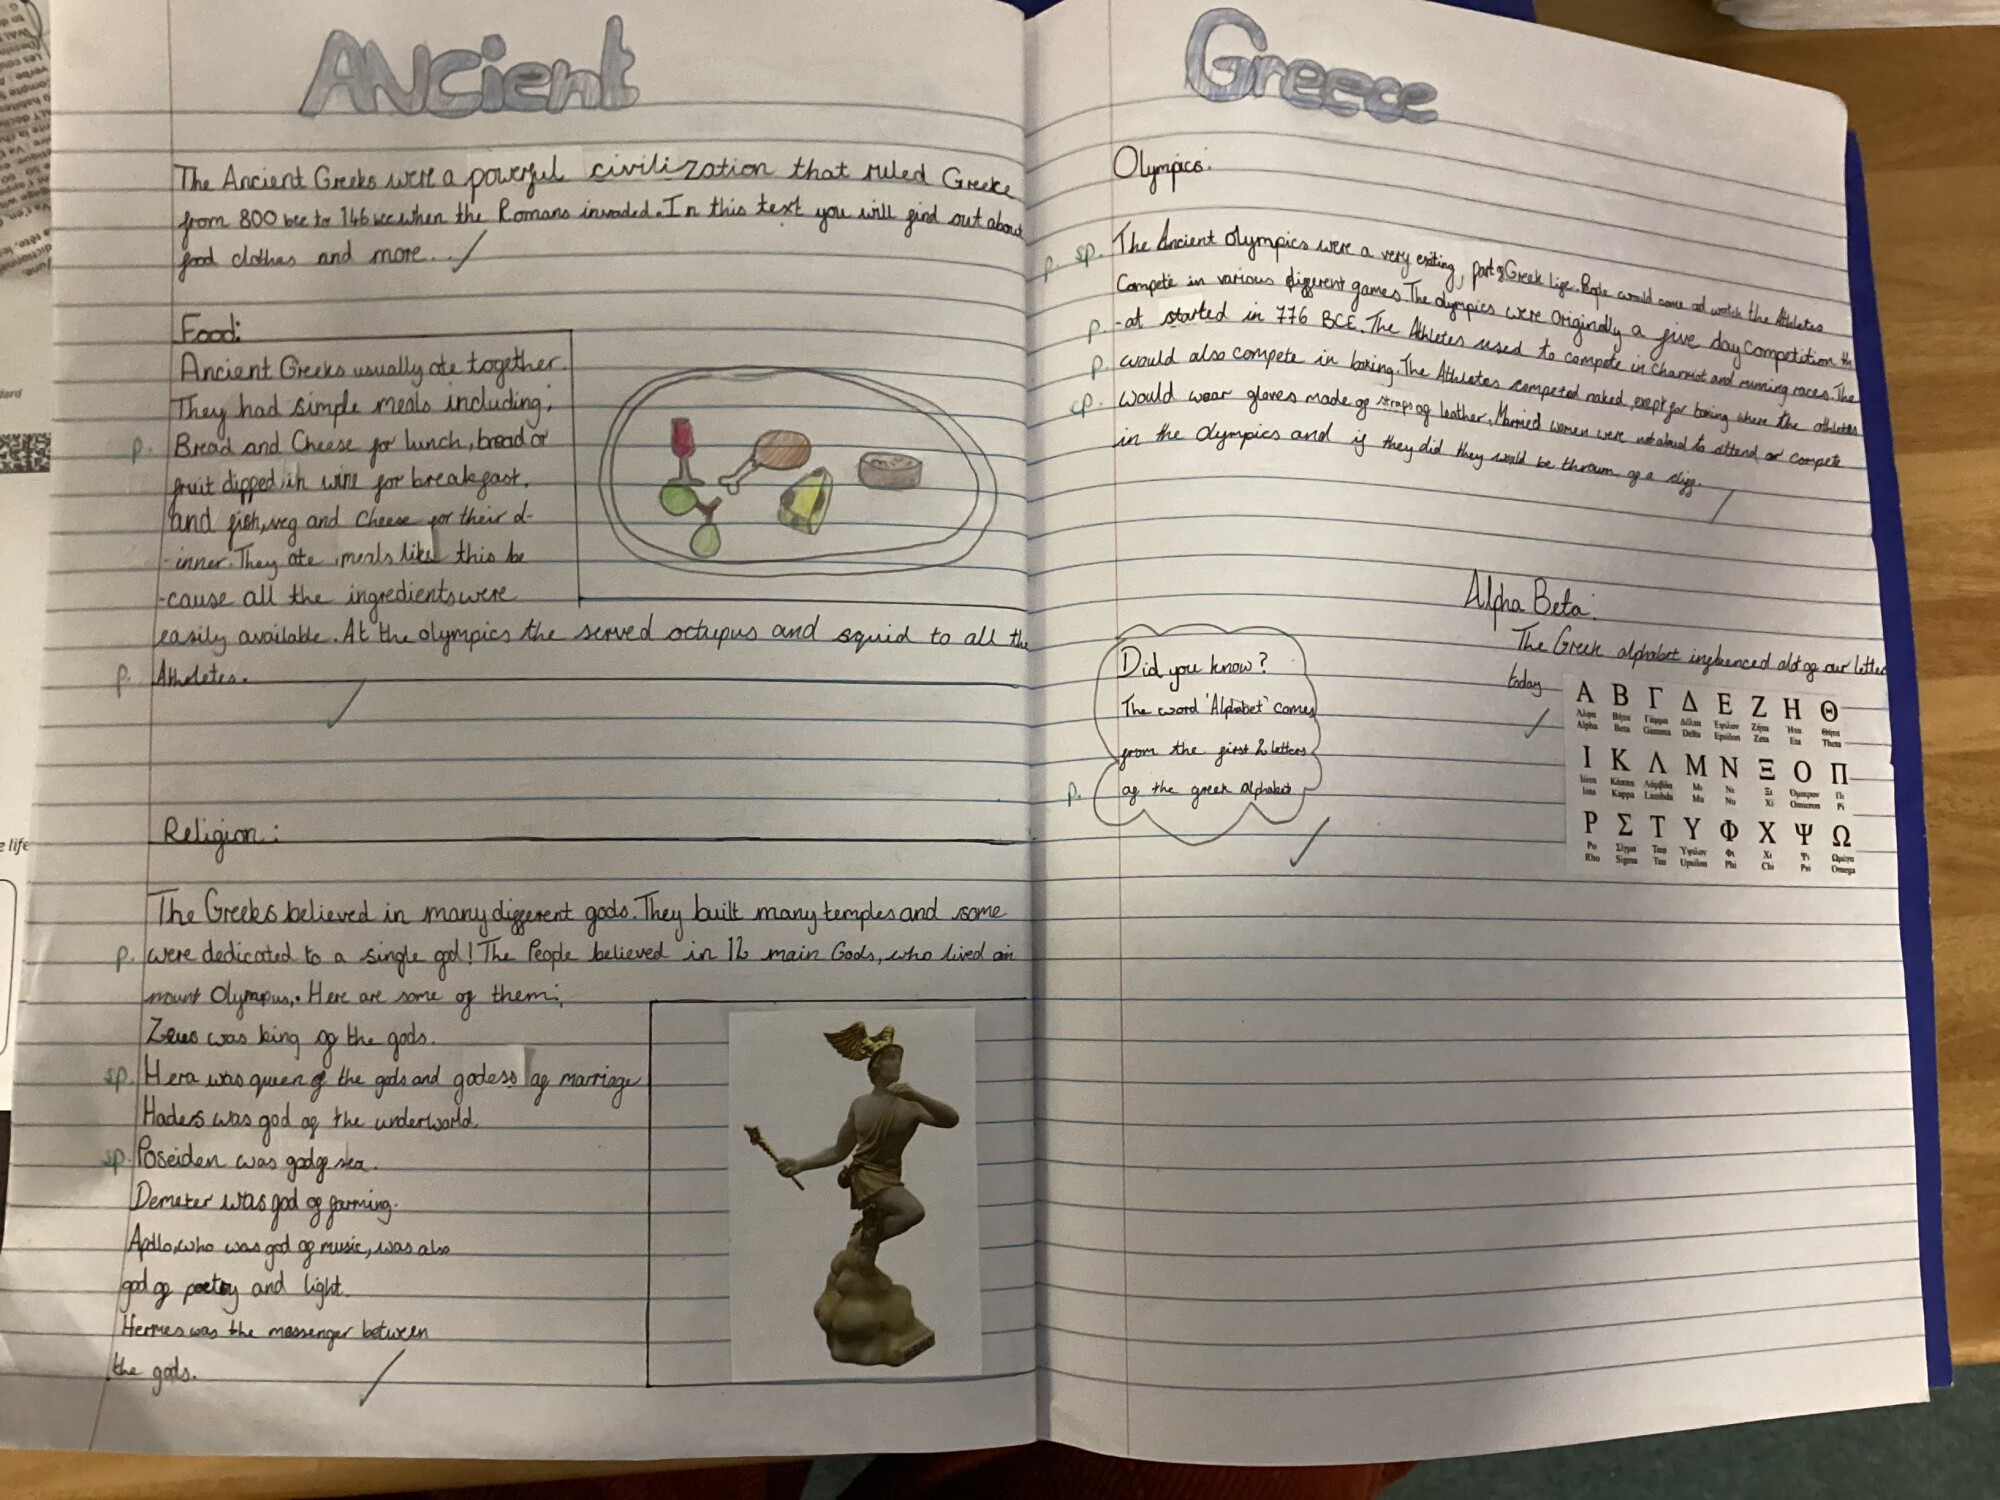 ANCient
The Ancient Greeks were a powerful civilization that ruled Greece
from 800 bce to 146 bce when the Romans invaded. In this text you will find out about
food clothes and more..
Food:
Ancient Greeks usually ate together.
They had simple meals including;
p. Bread and Cheese for lunch, bread or
fruit dipped in wine for breakfast,
and fish, veg and Cheese for their d-
-inner. They ate meals like this be
-cause all the ingredients were
easily available. At the olympics the served octupus and squid to all the
p. Athletes.
Religion:
The Greeks believed in many different gods. They built many temples and some
p. were dedicated to a single god! The People believed in 12 main Gods, who lived on
mount Olympus,. Here are some of them;
Zeus was king of the gods.
sp. Hera was queen of the gods and godess of marriage
Haders was god of the underworld.
sp. Poseiden was god of sea.
Demeter was god of farming.
Apollo, who was god of music, was also
god of poetry and light.
Hermes was the messenger between
the gods.
Greece
Olympics:
p. sp. The Ancient Olympics were a very exiting, part of Greek life. People would come and watch the Athletes
Compete in various different games. The olympics were Originally a five day competition th
p. -at started in 776 BCE. The Athletes used to compete in charriot and running races. The
p. would also compete in boxing. The Athletes competed naked, exept for boxing where the athletes
sp. would wear gloves made of straps of leather. Married women were not aloud to attend or compete
in the Olympics and if they did they would be thrown of a cliff.
Alpha Beta:
The Greek alphabet influenced alot of our letter
today
Did you know?
The word 'Alphabet' comes
from the first 2 letters
p. of the greek alphabet
Α Β Γ Δ Ε Ζ Η Θ
Άλφα Βήτα Γάμμα Δέλτα Έψιλον Ζήτα Ήτα Θήτα
Alpha Beta Gamma Delta Epsilon Zeta Eta Theta
Ι Κ Λ Μ Ν Ξ Ο Π
Ιώτα Κάππα Λάμβδα Μι Νι Ξι Όμικρον Πι
Iota Kappa Lambda Mu Nu Xi Omicron Pi
Ρ Σ Τ Υ Φ Χ Ψ Ω
Ρο Σίγμα Ταυ Ύψιλον Φι Χι Ψι Ωμέγα
Rho Sigma Tau Upsilon Phi Chi Psi Omega